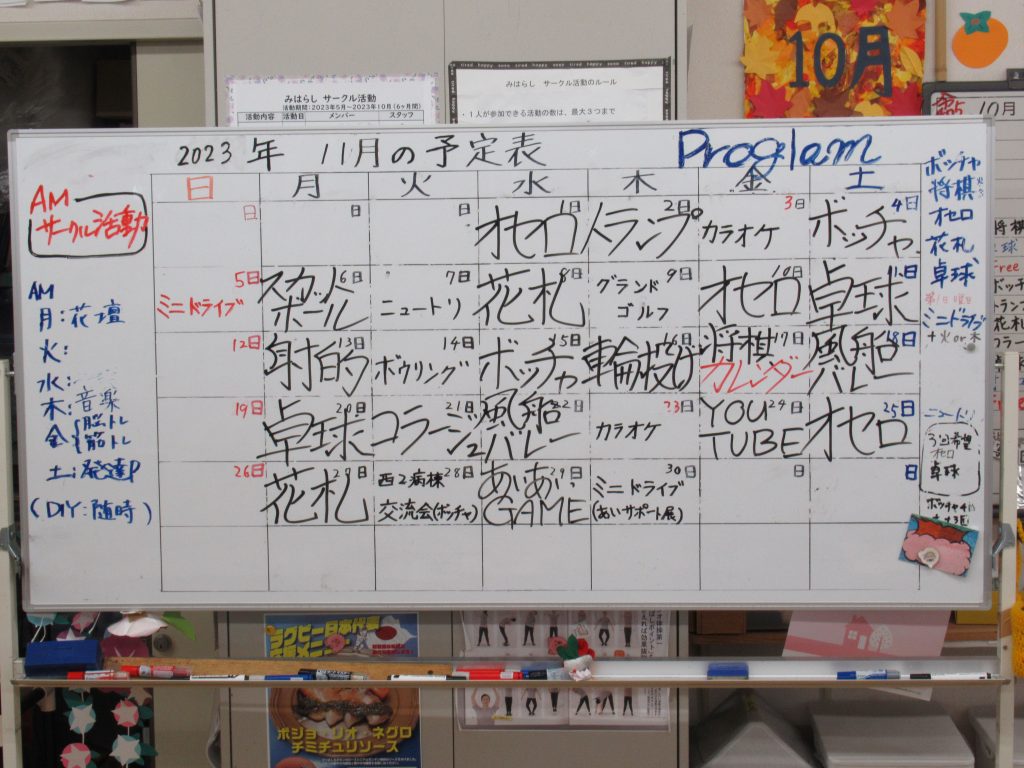 10月
みはらし サークル活動
活動期間:2023年5月~2023年10月(6ヶ月間)
活動内容 活動日 メンバー スタッフ
みはらし サークル活動のルール
・1人が参加できる活動の数は、最大3つまで
10月
2023年 11月の予定表
Proglam
日 月 火 水 木 金 土
日 日 日 1日 2日 3日 4日
オセロ トランプ カラオケ ボッチャ
5日 6日 7日 8日 9日 10日 11日
ミニドライブ
スカットボール
ニュートリ
花札
グランドゴルフ
オセロ
卓球
12日 13日 14日 15日 16日 17日 18日
射的
ボウリング
ボッチャ
輪投げ
将棋
カレンダー
風船バレー
19日 20日 21日 22日 23日 24日 25日
卓球
コラージュ
風船バレー
カラオケ
YOU TUBE
オセロ
26日 27日 28日 29日 30日 日 日
花札
西2病棟
交流会(ボッチャ)
あいあいGAME
ミニドライブ
(あいサポート展)
AM
サークル活動
AM
月:花壇
火:
水:
木:音楽
金{脳トレ
筋トレ
土:発達P
(DIY:随時)
ボッチャ
将棋
オセロ
花札
卓球
第1日曜日
ミニドライブ
+火or木
ニュートリ
3回希望
オセロ
卓球
ラグビー日本代表
ポジョ・リオ・ネグロ
チミチュリソース